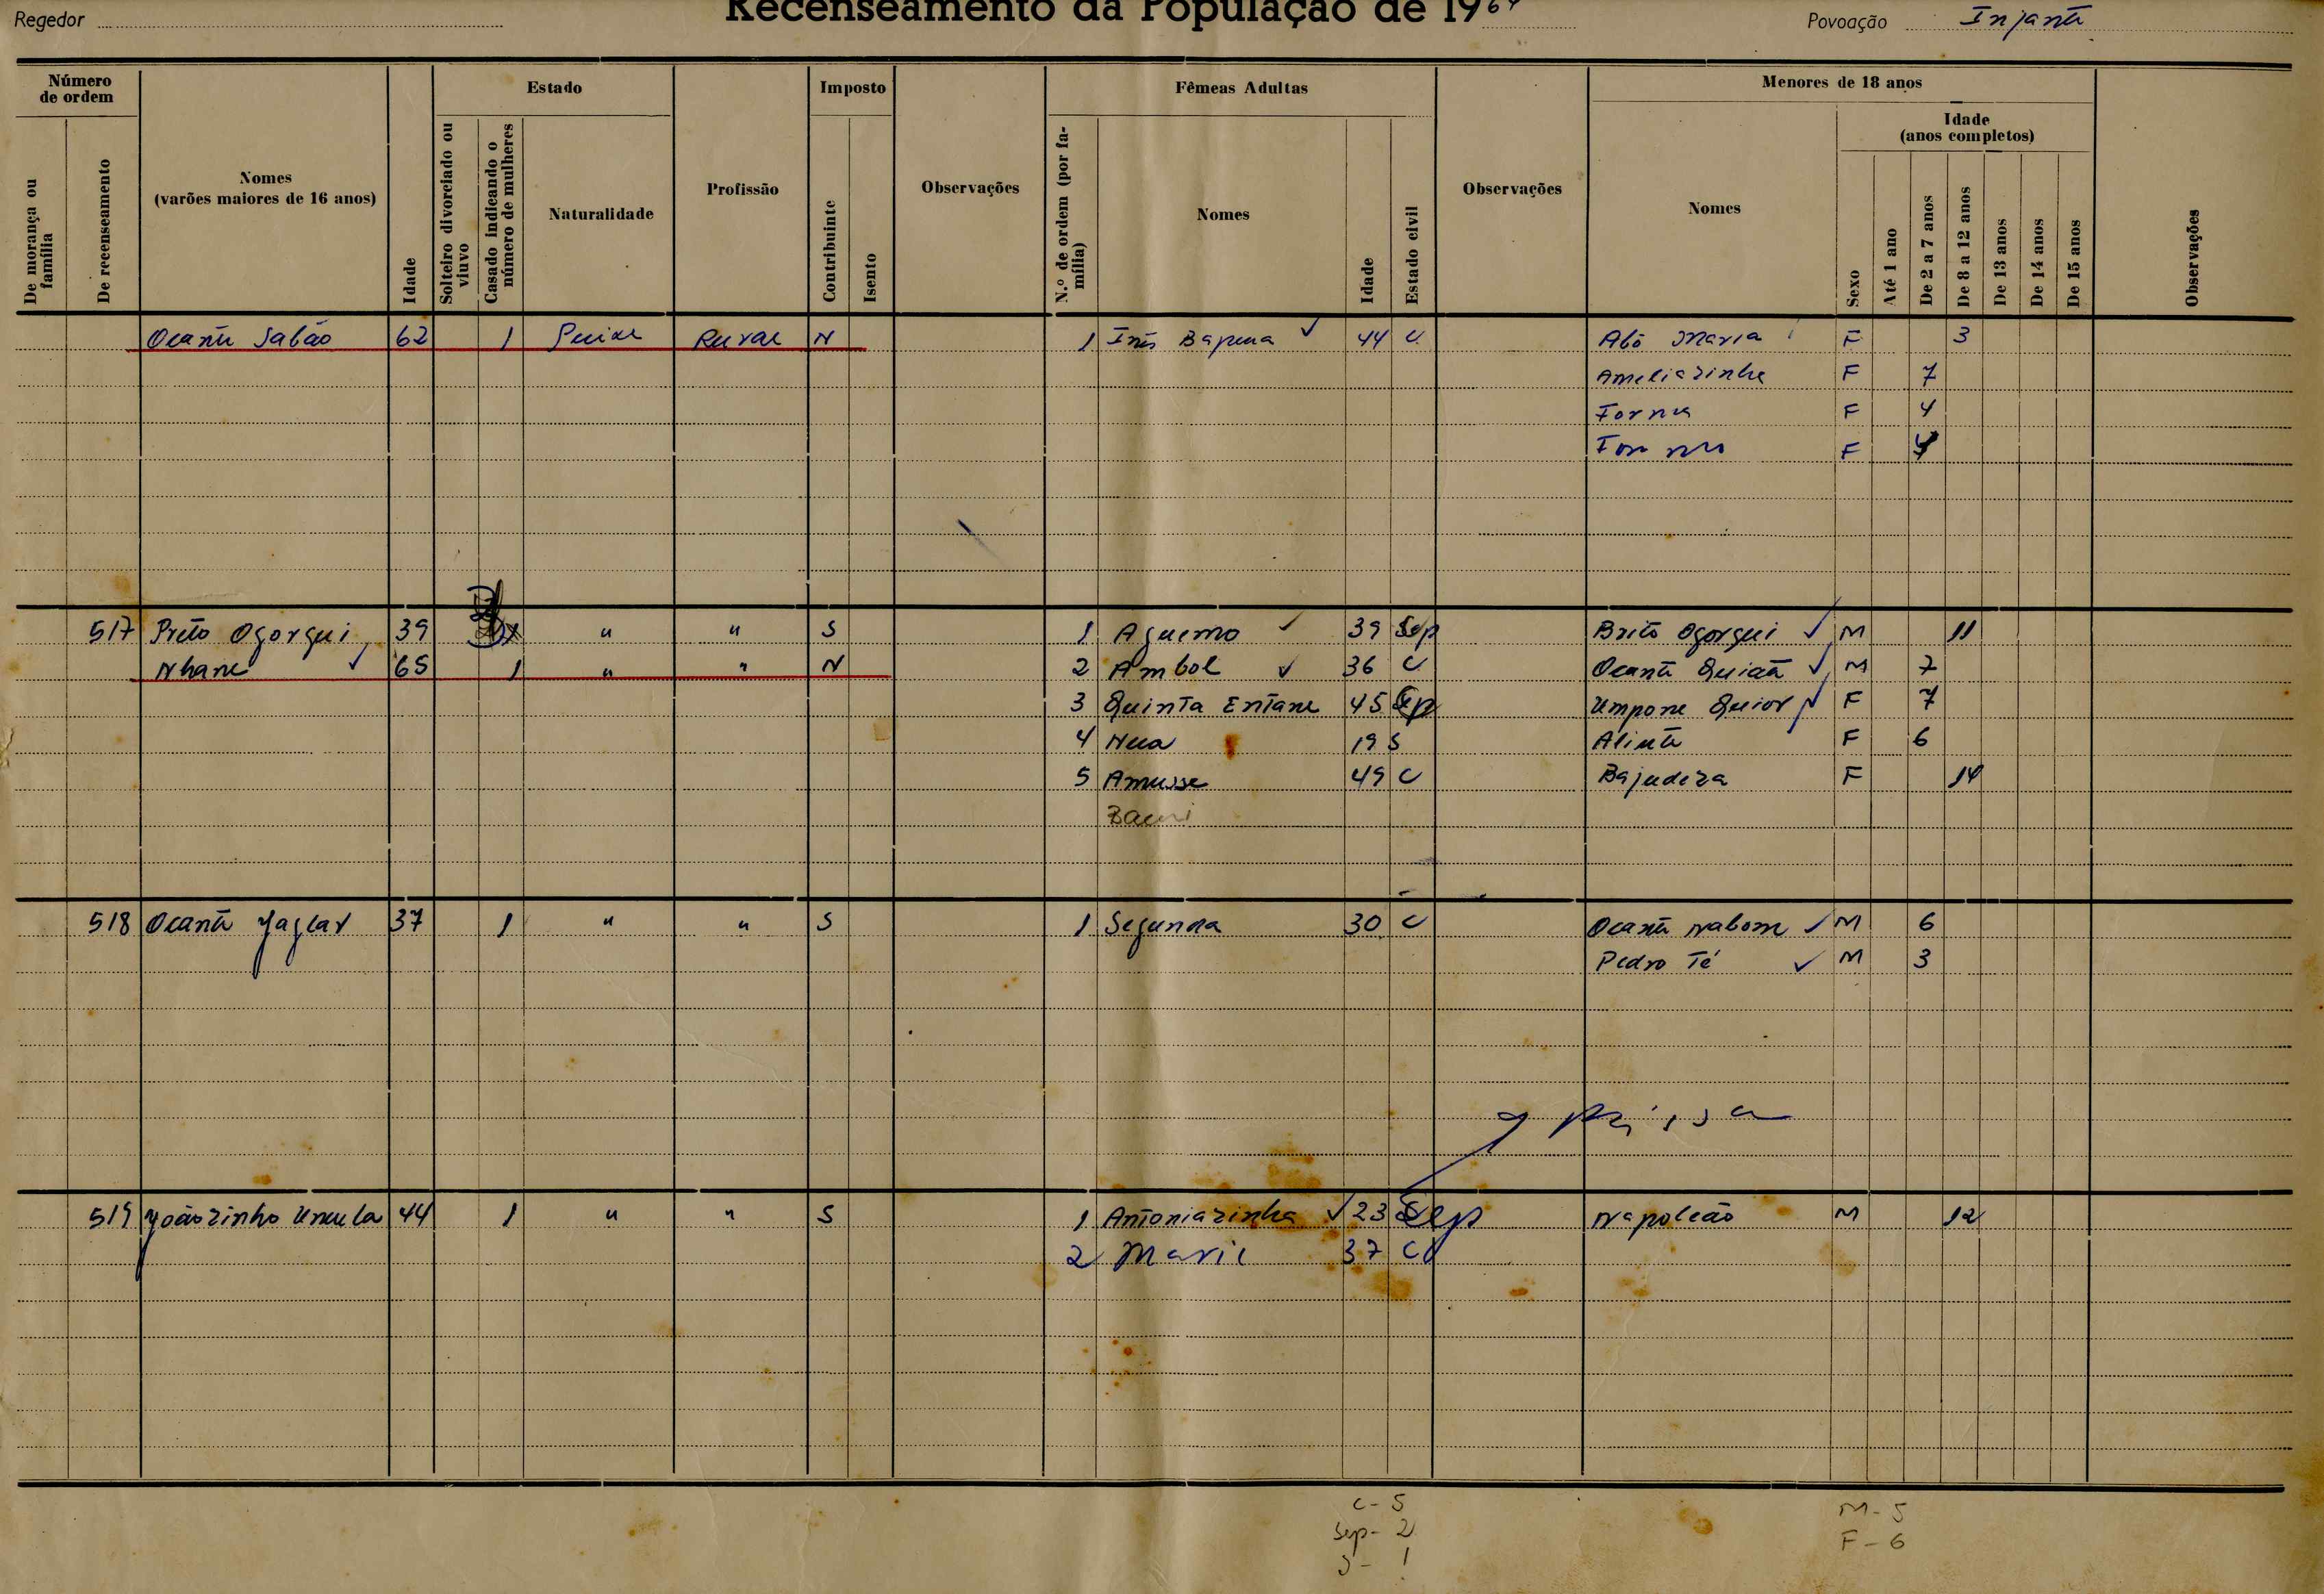 Regedor
Recenseamento da População de 1964
Povoação Injantã
Número de ordem
De morança ou família
De recenseamento
Nomes
(varões maiores de 16 anos)
Idade
Estado
Solteiro divorciado ou viuvo
Casado indicando o número de mulheres
Naturalidade
Profissão
Imposto
Contribuinte
Isento
Observações
Fêmeas Adultas
N.º de ordem (por família)
Nomes
Idade
Estado civil
Observações
Menores de 18 anos
Nomes
Sexo
Idade
(anos completos)
Até 1 ano
De 2 a 7 anos
De 8 a 12 anos
De 13 anos
De 14 anos
De 15 anos
Observações
Ocantu Sabão 62 1 Rural N 1 Inês Bapena ✓ 44 C Abó Maria F 3
Ameliazinha F 7
Forna F 4
F
517 Preto Ogorgui 39 " " S 1 Aguemo ✓ 39 Sep Brito Ogorgui ✓ M 11
Nhane ✓ 65 1 " " N 2 Ambol ✓ 36 C Ocantu Quiatã ✓ M 7
3 Quinta Entane 45 Sep Umpone Quior ✓ F 7
4 Nua 19 S Alintã F 6
5 Amusse 49 C Bajudeza F 14
518 Ocantu Jaglar 37 1 " " S 1 Segunda 30 C Ocantu Nabom ✓ M 6
Pedro Té ✓ M 3
519 Joãozinho Uncula 44 1 " " S 1 Antoniazinha ✓ 23 Sep Napoleão M 12
2 Maria 37 C
C - 5
Sep - 2
S - 1
M - 5
F - 6